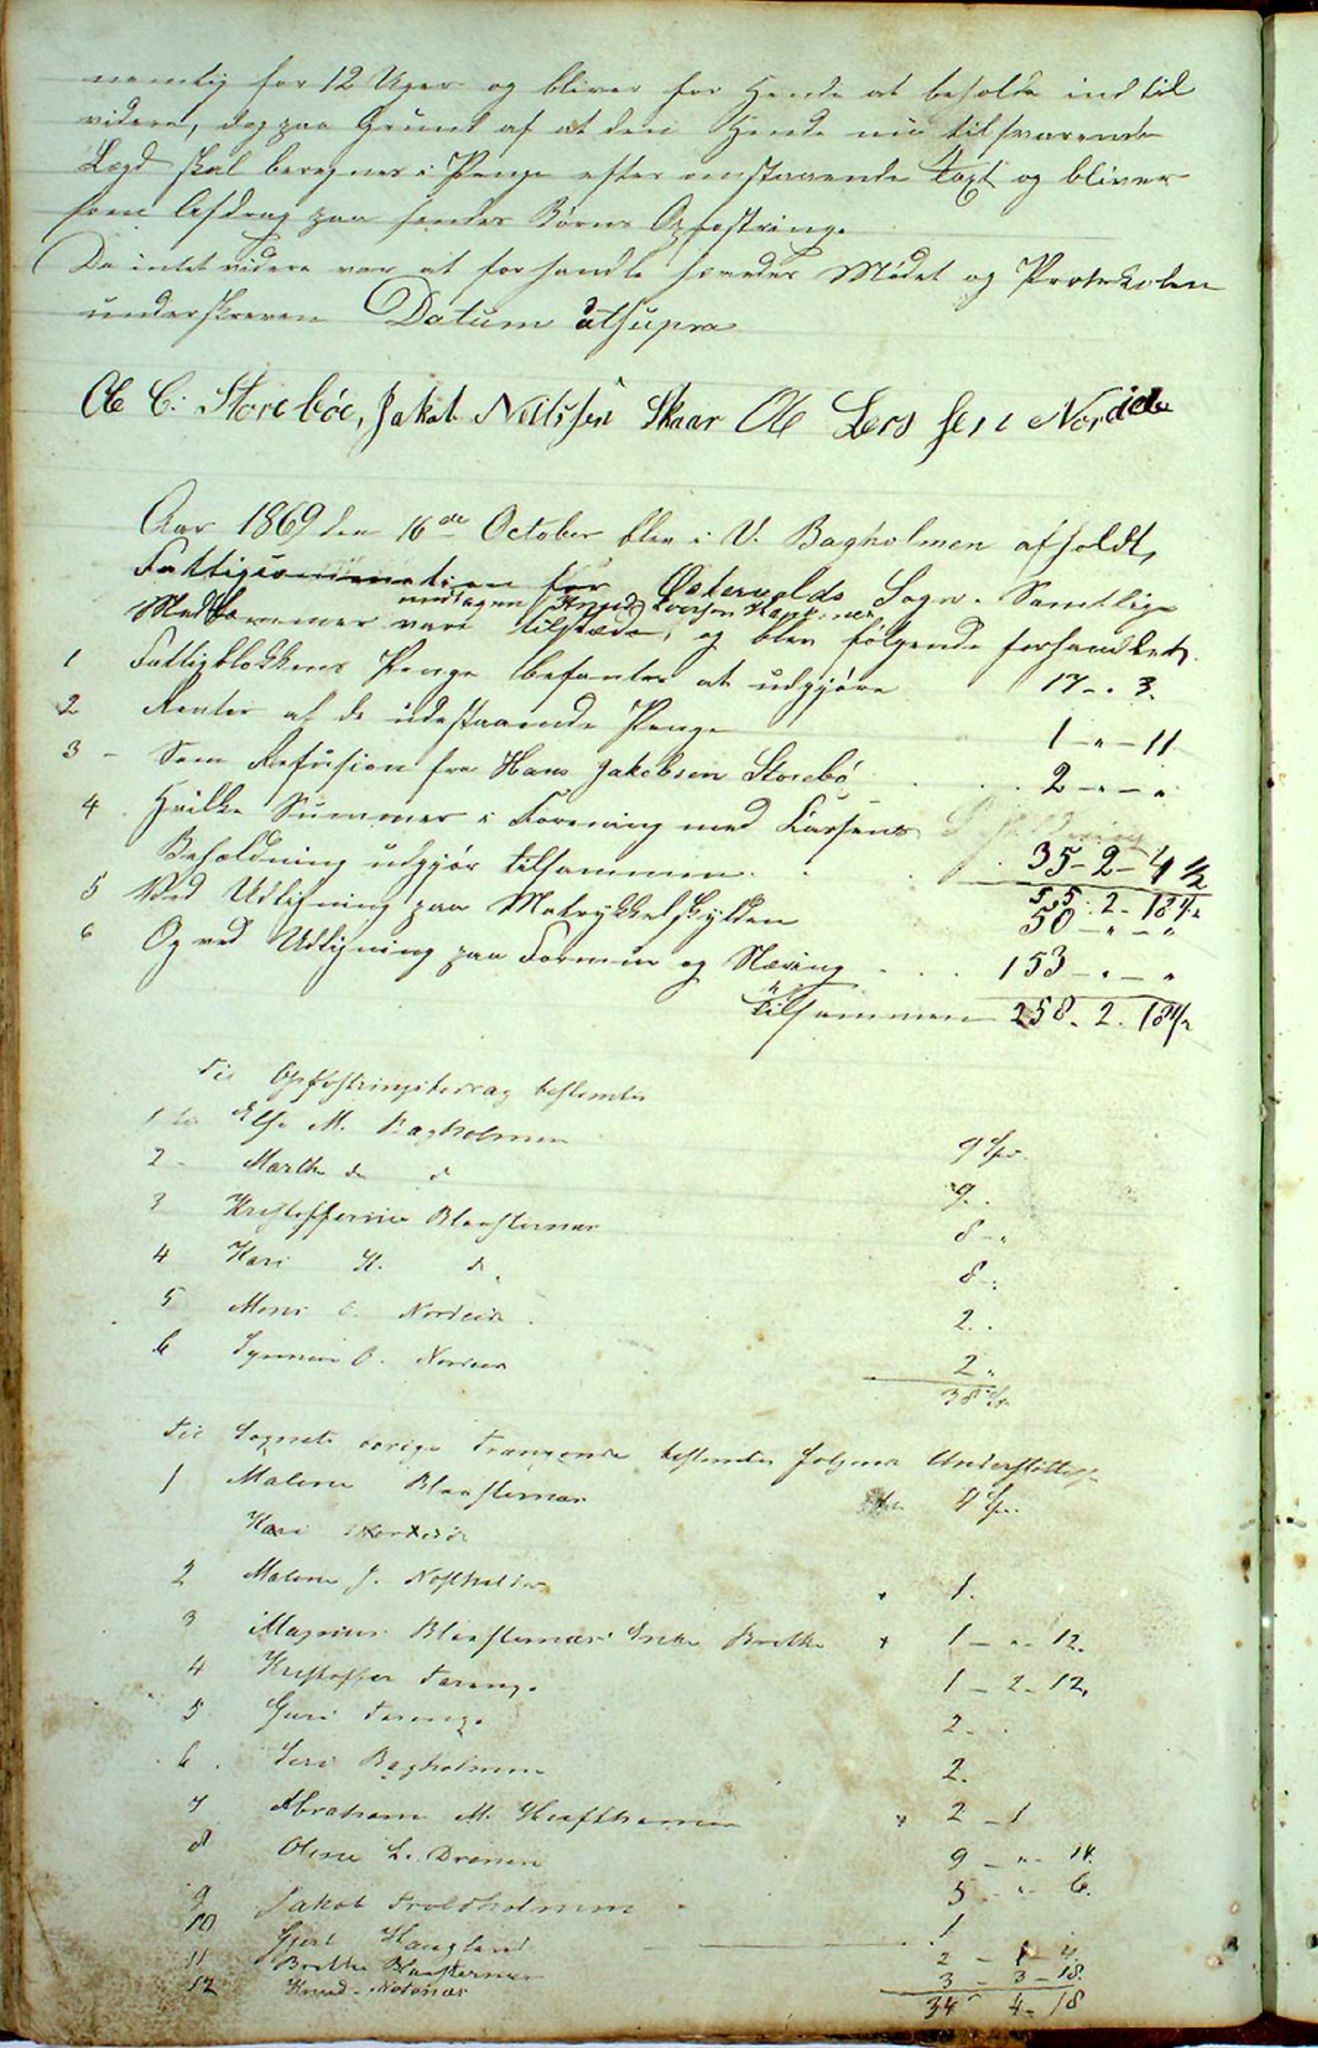 nemlig for 12 Uger og bliver for Hende at beholde ind til
videre, dog paa Grund af at den Hende nu tilsvarende
Lægd skal beregnes i Penge efter omstaaende Taxt og bliver
som Afdrag paa hendes Børns Opfostring.
Da intet videre var at forhandle hævdes Mødet og Protokolen
underskreven Datum utsupra
Ole C. Storebøe, Jakob Nillssen Skaar Ole Lers sen Nordeide
Aar 1869 den 16de October blev i V. Bagholmen afholdt,
Fattigcommention for Østervolds Sogn. Samtlige
undtagen Knud Iversen
Medlemmer vare tilstæde, og blev følgende forhandlet.
1 Fattigblokkens Penge befantes at udgjøre 17 - . 3.
2 Renter af de udestaaende Penge 1 - " - 11
3 - Som Refusion fra Hans Jakobsen Storebø . . . 2 - " - "
4 . Hvilke Summer i Forening med Kassens
Beholdning udgjør tilsammen . . . 35 - 2 - 4 1/2
55. 2 - 18 1/2
5 Ved Udlifning paa Matrykkelskylden 50 - " - "
6 Og ved Udligning paa Formue og Næring . . . 153 - " - "
Tilsammen 258. 2. 18 1/2
Til Opfostringsbidrag bestemtes
1 Else M. Bagholmen 9 Spd.
2 - Marthe do d 9. .
3 Kristofferine Blaasternæs 8 - "
4 Kari K. d. 8 - "
5 Mons O. Nordeide . 2. .
6 Synneve O. Nordeide 2 "
38 Sp.
Til Sognets øvrige Trængende bestemtes følgende Understøttelse
1 Malene Blaasternæs 4 Sp.
Kari Nordeide
2 Malene J. 1.
3 Magnus Blaasternæs Enke Brethe + 1 - " - 12.
4 Kristoffer Tareng. 1 - 2 - 12.
5 Guri Tareng. 2. .
6 . Siri Bagholmen 2.
7 Abraham M. Hufthamer + 2 - 1
8 Oline L. Drønen 9 - " - 14.
9 Jakob Troldholmen 5 - " - 6.
10 Gjert Haugland 1
11 Brethe Blaasternæs 2 - 1 - 4.
12 Knud - Notenæs 3 - 3 - 18.
34 - 4 - 18